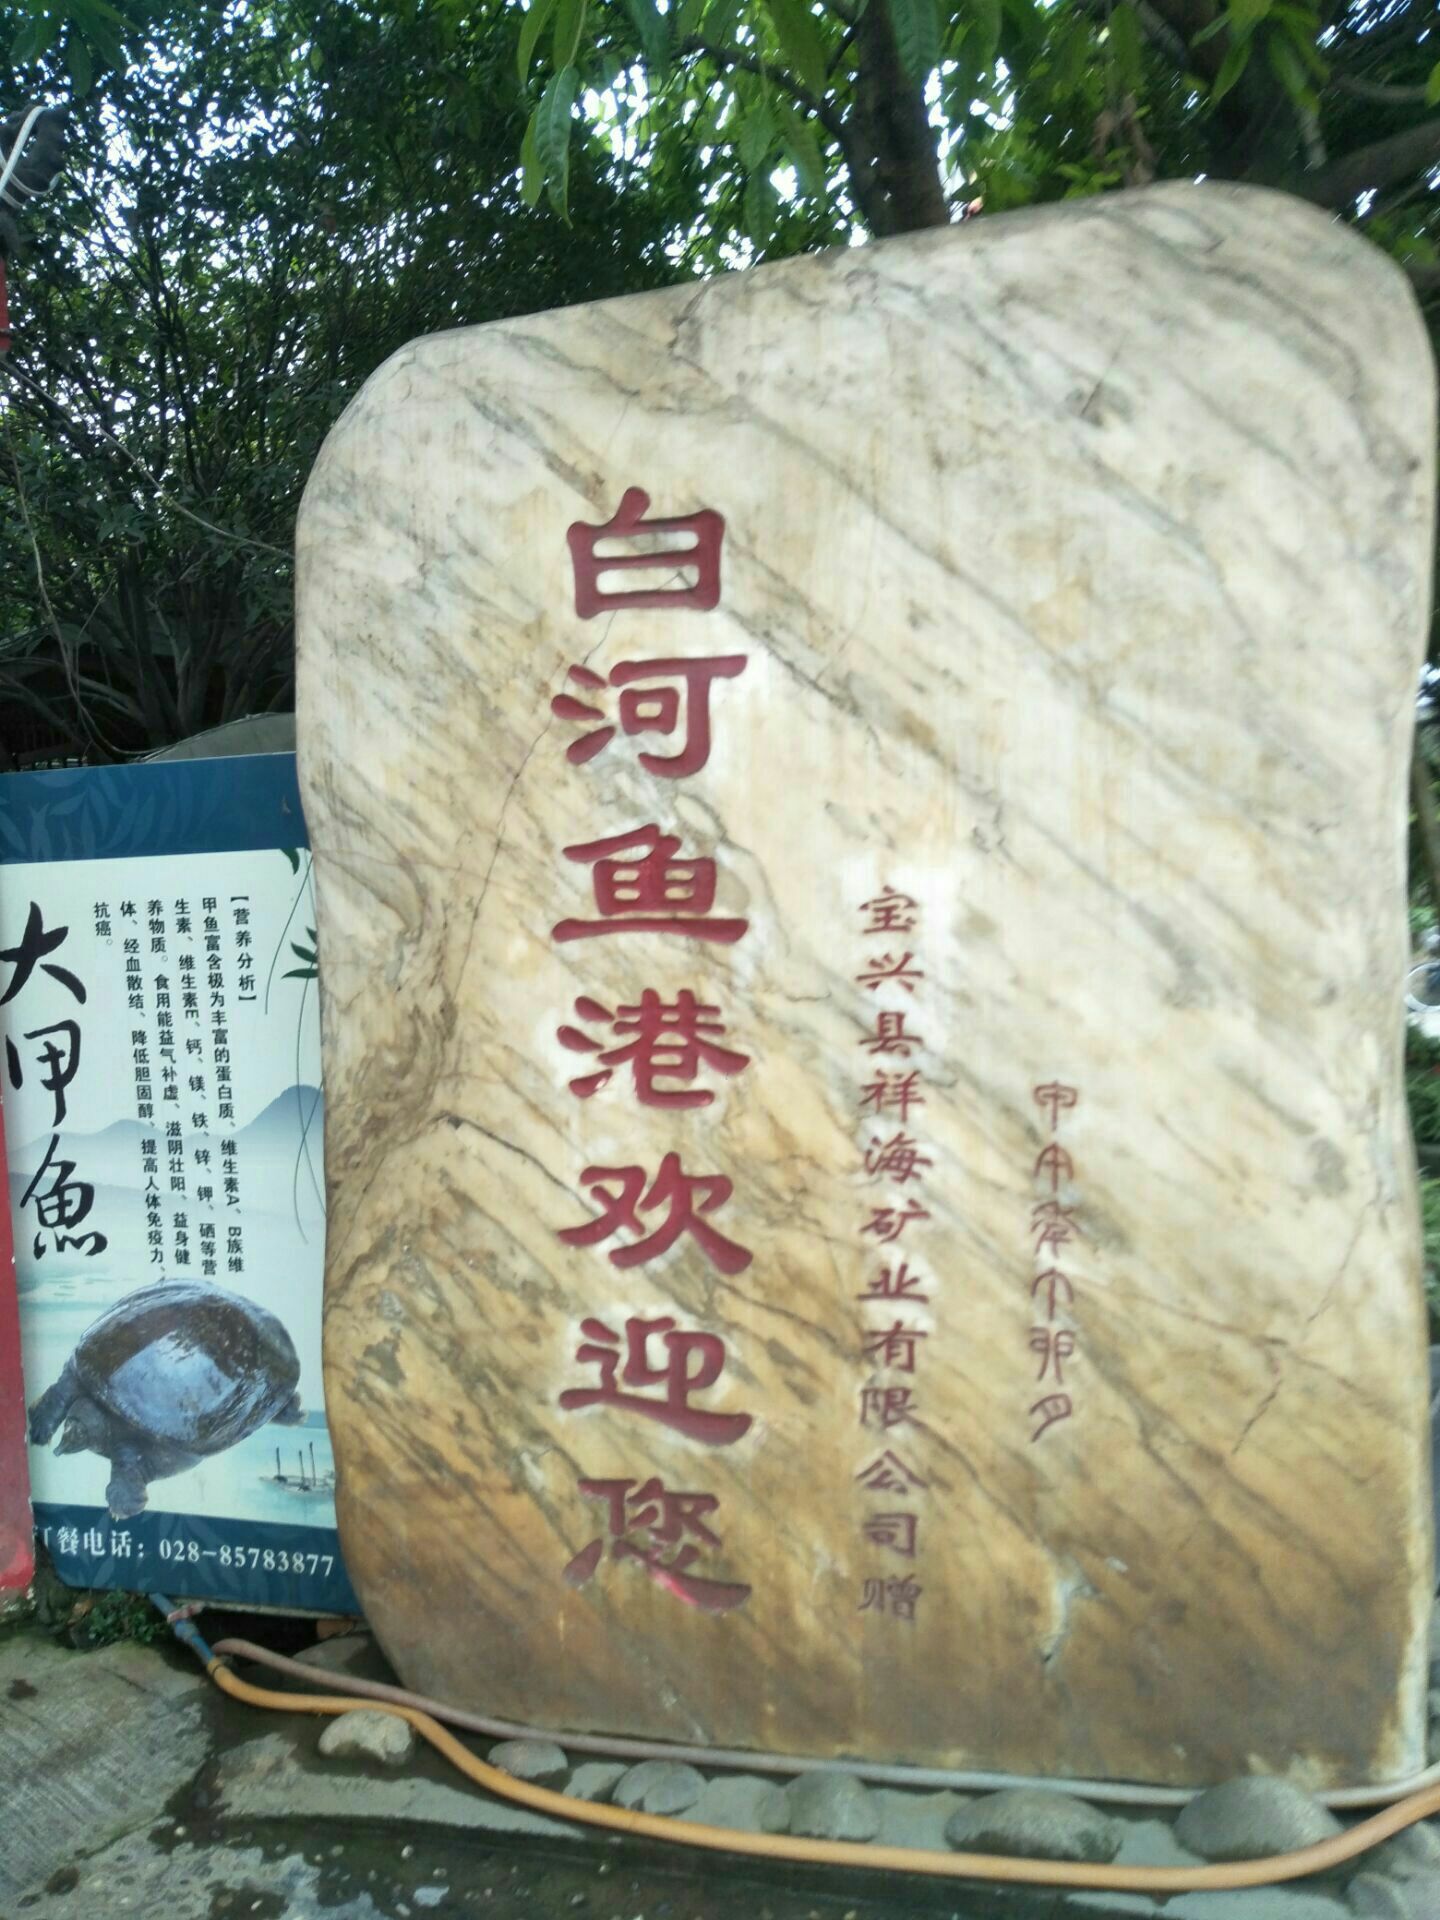 白河鱼港欢迎您
宝兴县祥海矿业有限公司赠
甲申年丁卯月
大甲魚
【营养分析】
甲鱼富含极为丰富的蛋白质、维生素A、B族维
生素、维生素E、钙、镁、铁、锌、钾、硒等营
养物质。食用能益气补虚、滋阴壮阳、益身健
体、经血散结、降低胆固醇、提高人体免疫力、
抗癌。
订餐电话：028-85783877